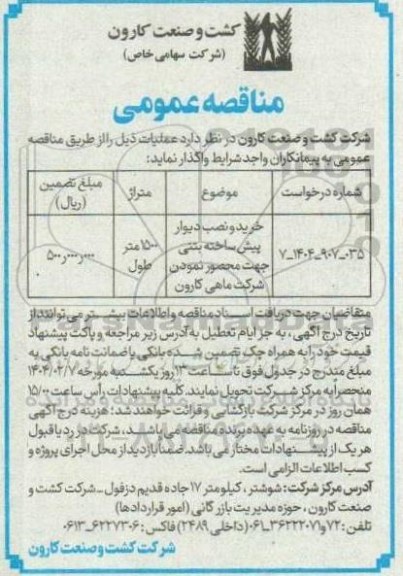 کشت و صنعت کارون
(شرکت سهامی خاص)
مناقصه عمومی
شرکت کشت و صنعت کارون در نظر دارد عملیات ذیل را از طریق مناقصه
عمومی به پیمانکاران واجد شرایط واگذار نماید:
شماره درخواست	موضوع	متراژ	مبلغ تضمین (ریال)
۷_۱۴۰۴_۹۰۷_۰۳۵	خرید و نصب دیوار پیش ساخته بتنی جهت محصور نمودن شرکت ماهی کارون	۱۵۰۰ متر طول	۵۰۰ر۰۰۰ر۰۰۰
متقاضیان جهت دریافت اسناد مناقصه و اطلاعات بیشتر می توانند از
تاریخ درج آگهی، به جز ایام تعطیل به آدرس زیر مراجعه و پاکت پیشنهاد
قیمت خود را به همراه چک تضمین شده بانکی یا ضمانت نامه بانکی به
مبلغ مندرج در جدول فوق تا ساعت ۱۳ روز یکشنبه مورخه ۱۴۰۴/۰۲/۷
منحصراً به مرکز شرکت تحویل نمایند. کلیه پیشنهادات رأس ساعت ۱۵/۰۰
همان روز در مرکز شرکت بازگشایی و قرائت خواهند شد؛ هزینه درج آگهی
مناقصه در روزنامه به عهده برنده مناقصه می باشد، شرکت در رد یا قبول
هر یک از پیشنهادات مختار می باشد. ضمناً بازدید از محل اجرای پروژه و
کسب اطلاعات الزامی است.
آدرس مرکز شرکت: شوشتر، کیلومتر ۱۷ جاده قدیم دزفول _ شرکت کشت و
صنعت کارون، حوزه مدیریت بازرگانی (امور قراردادها)
تلفن: ۷۲ و ۳۶۲۲۲۰۷۱_۰۶۱ (داخلی ۲۴۸۹) فاکس: ۶۲۲۷۳۰۶_۰۶۱۳
شرکت کشت و صنعت کارون